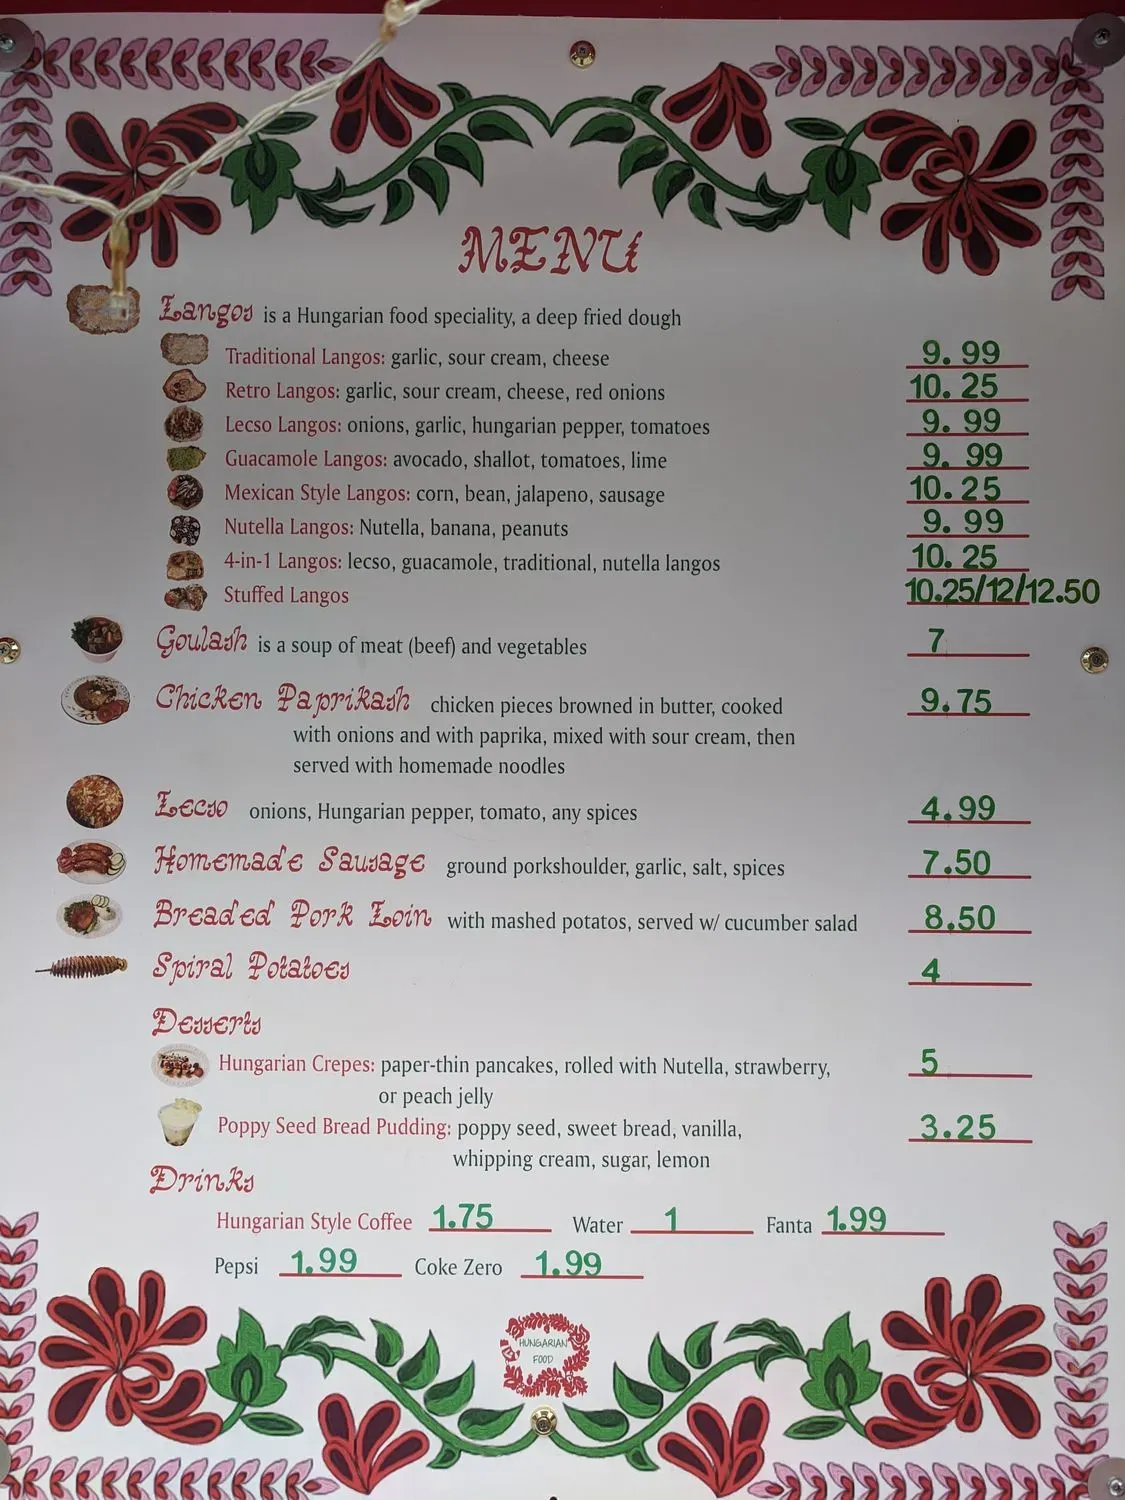 MENU
Langos is a Hungarian food speciality, a deep fried dough
Traditional Langos: garlic, sour cream, cheese 9.99
Retro Langos: garlic, sour cream, cheese, red onions 10.25
Lecso Langos: onions, garlic, hungarian pepper, tomatoes 9.99
Guacamole Langos: avocado, shallot, tomatoes, lime 9.99
Mexican Style Langos: corn, bean, jalapeno, sausage 10.25
Nutella Langos: Nutella, banana, peanuts 9.99
4-in-1 Langos: lecso, guacamole, traditional, nutella langos 10.25
Stuffed Langos 10.25/12/12.50
Goulash is a soup of meat (beef) and vegetables 7
Chicken Paprikash chicken pieces browned in butter, cooked 9.75
with onions and with paprika, mixed with sour cream, then
served with homemade noodles
Lecso onions, Hungarian pepper, tomato, any spices 4.99
Homemade Sausage ground porkshoulder, garlic, salt, spices 7.50
Breaded Pork Loin with mashed potatos, served w/ cucumber salad 8.50
Spiral Potatoes 4
Desserts
Hungarian Crepes: paper-thin pancakes, rolled with Nutella, strawberry, 5
or peach jelly
Poppy Seed Bread Pudding: poppy seed, sweet bread, vanilla, 3.25
whipping cream, sugar, lemon
Drinks
Hungarian Style Coffee 1.75 Water 1 Fanta 1.99
Pepsi 1.99 Coke Zero 1.99
HUNGARIAN
FOOD